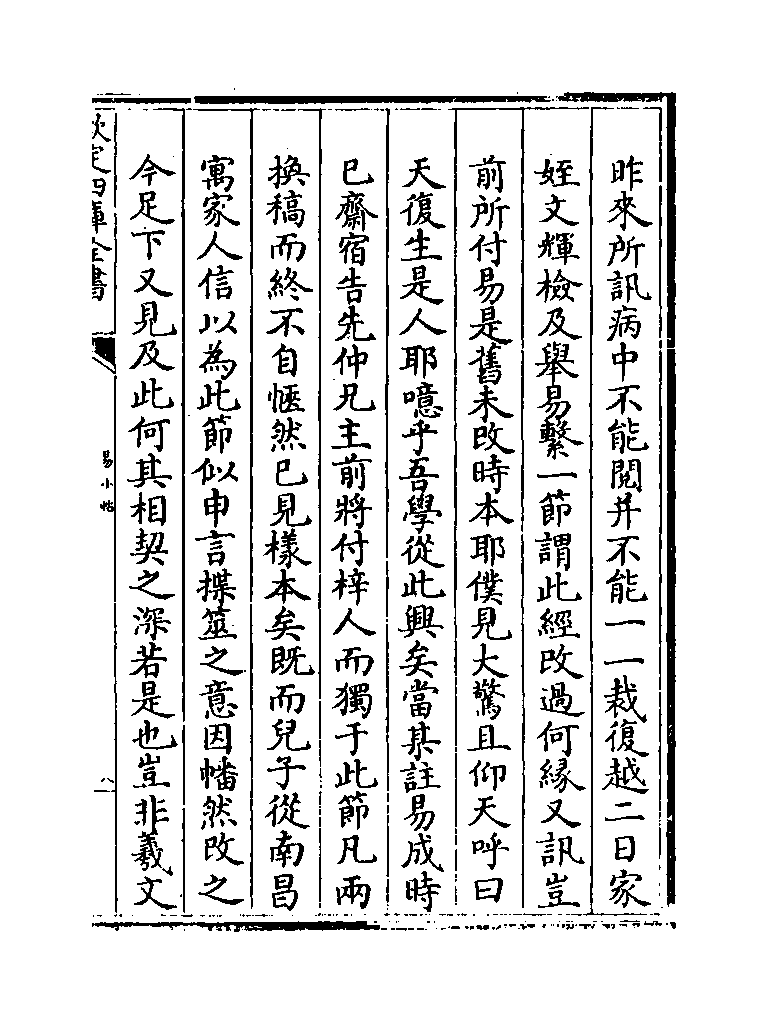 昨來所訊病中不能閱并不能一一裁復越二日家
姪文輝檢及舉易繫一節謂此經改過何緣又訊豈
前所付易是舊未改時本耶僕見大驚且仰天呼曰
天復生是人耶噫乎吾學從此興矣當某註易成時
已齋宿告先仲兄主前將付梓人而獨于此節凡兩
換稿而終不自愜然已見樣本矣既而兒子從南昌
寓家人信以為此節似申言揲筮之意因幡然改之
今足下又見及此何其相契之深若是也豈非羲文
欽定四庫全書
易小帖
八